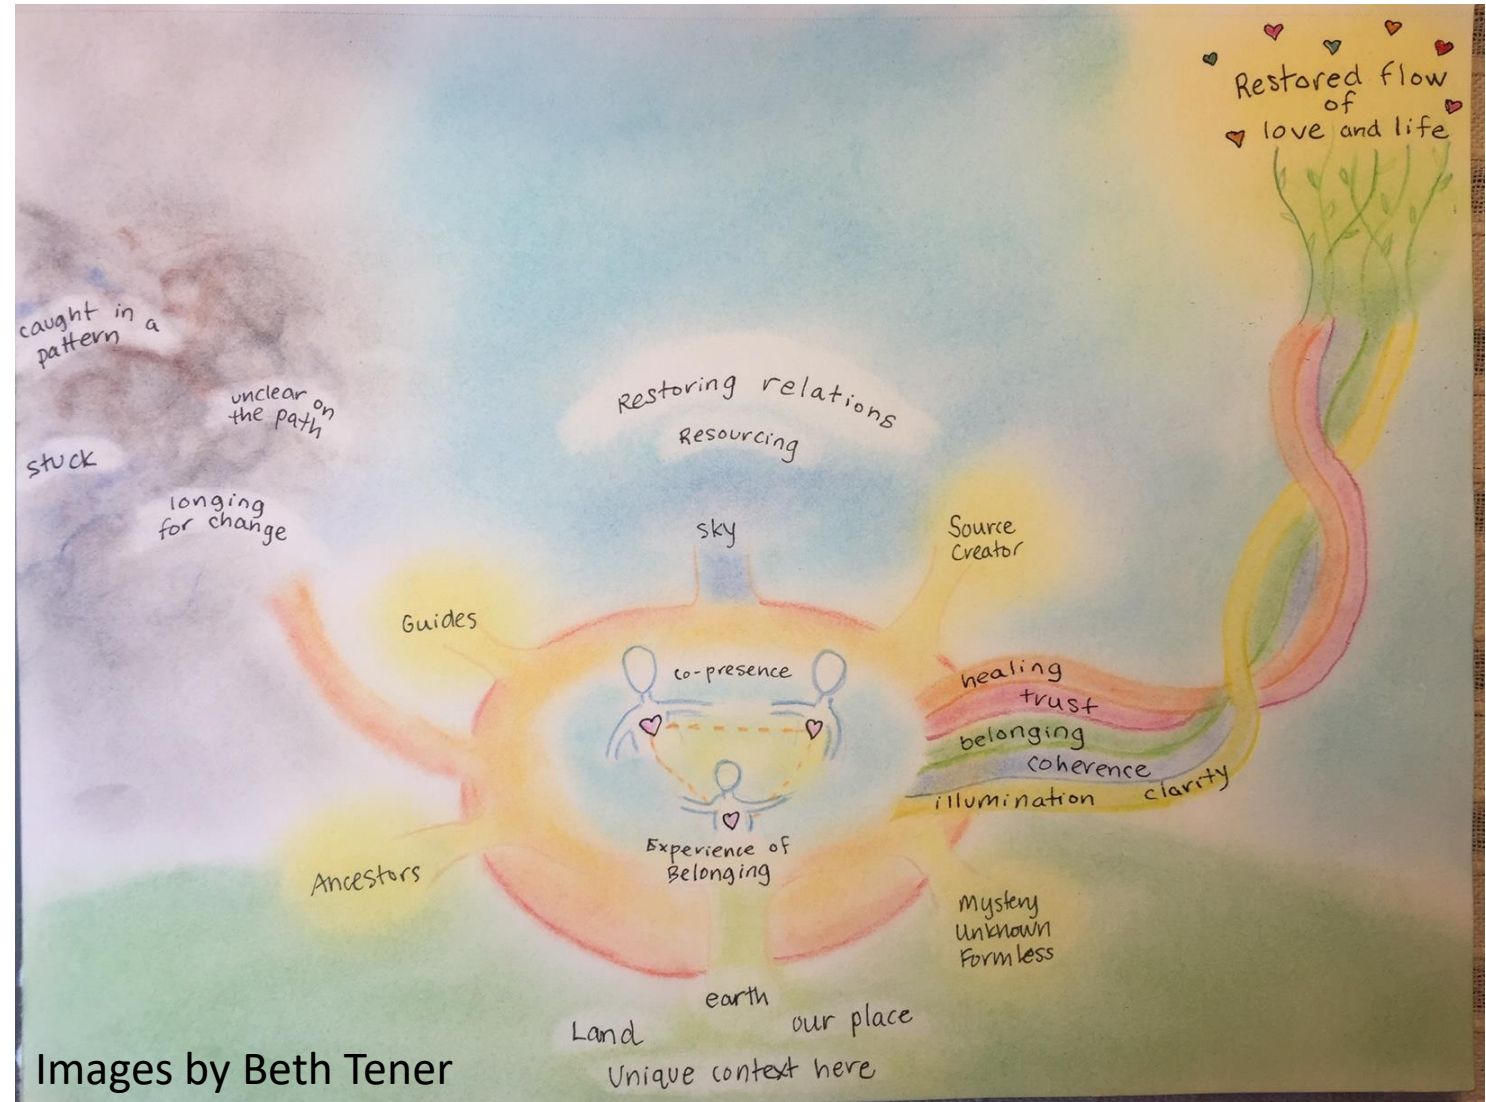 Restored flow
of
love and life
caught in a
pattern
unclear on
the path
stuck
longing
for change
Restoring relations
Resourcing
sky
Source
Creator
Guides
co-presence
healing
trust
belonging
coherence
illumination clarity
Experience of
Belonging
Ancestors
Mystery
Unknown
Formless
earth
Land
our place
Unique context here
Images by Beth Tener